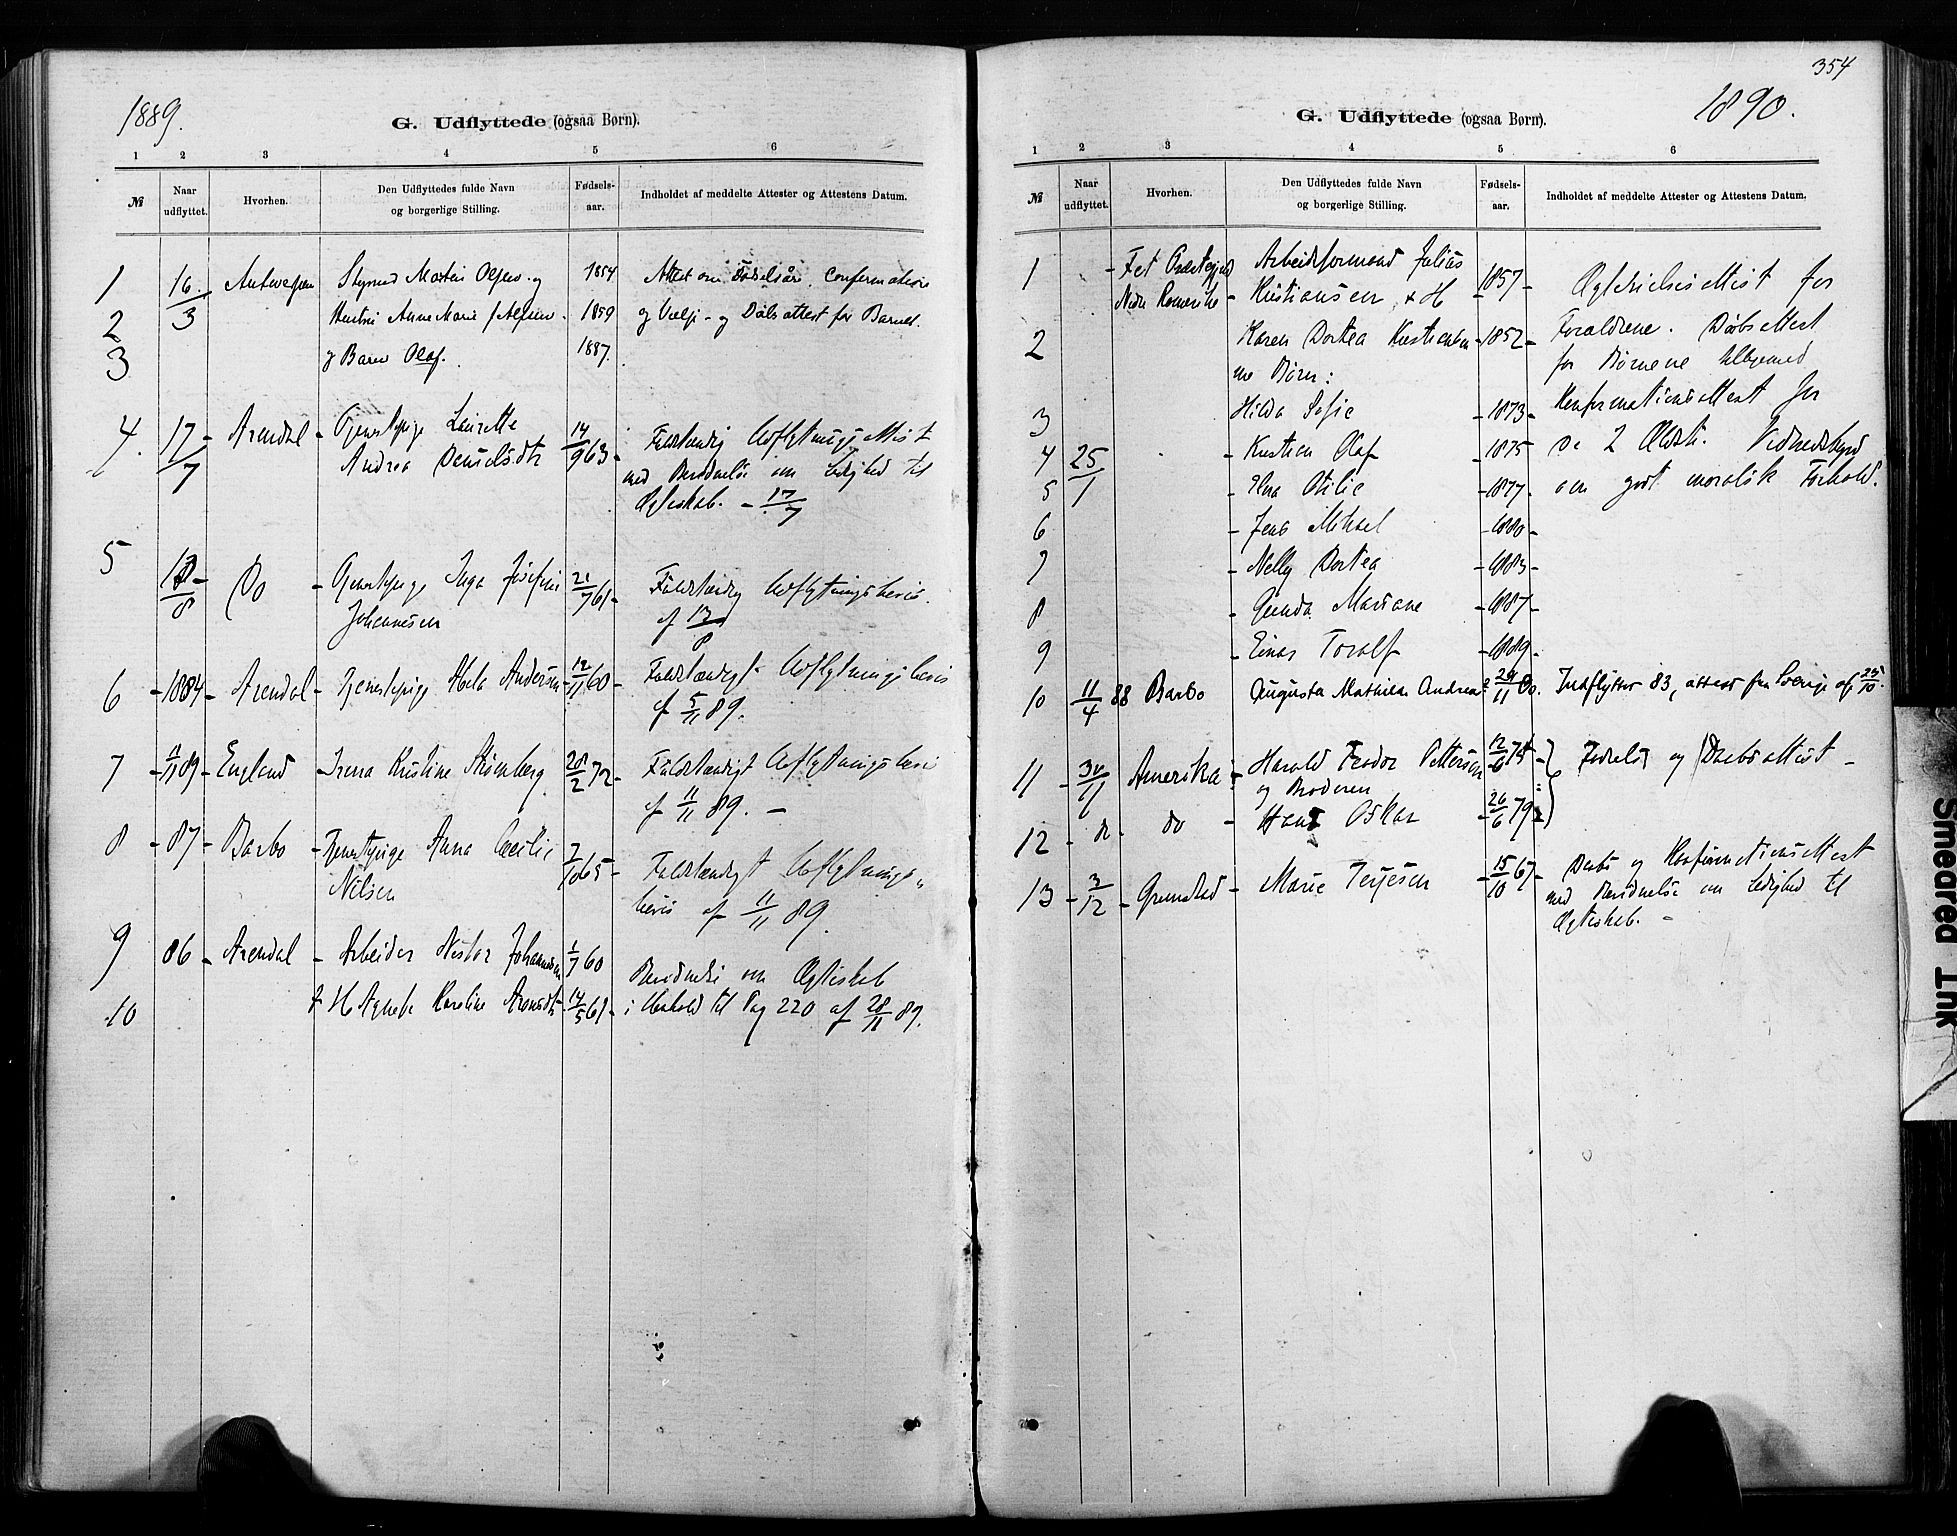 1889.
G. Udflyttede (ogsaa Børn).
1 2 3 4 5 6
№ Naar udflyttet. Hvorhen. Den Udflyttedes fulde Navn og borgerlige Stilling. Fødsels-aar. Indholdet af meddelte Attester og Attestens Datum.
1 16/3 Antwerpen Styrmd Martin Olsen og 1854 Attest om Fødselsår, Confirmation
2 Hustru Anne Marie 1859 og Vielse- og Dåbsattest for Barnet.
3 og Barn Olaf. 1887.
4. 17/7 - Arendal - Tjenestepige Laurette 14/9 63 - Fuldstændig Udflytningsattest
Andrea Danielsdtr med Bevidnelse om Ledighed til
Ægteskab. - 17/7
5 13/8 - Do - Tjenestepige Inga Josefine 21/7 61 - Fuldstændig Udflytningsbevis
Johannesen af 13/8
6 - 1884 - Arendal - Tjenestepige Andersen - 12/11 60 - Fuldstændigt Udflytningsbevis
af 5/11 89.
7 - 11/11 89 - England - Kristine 28/2 72 - Fuldstændigt Udflytningsbevis
af 11/11 89. -
8 - 87 - Barbo - Tjenestepige Anna Cecilie 7/10 65 - Fuldstændigt Udflytnings-
Nilsen bevis af 11/11 89.
9 86 - Arendal - Arbeider Johannesen 1/7 60 Bevidnelse om Ægteskab
10 & H Karoline 14/5 61 - i Henhold til Pag 220 af 28/11 89.
354
1890.
G. Udflyttede (ogsaa Børn).
1 2 3 4 5 6
№ Naar udflyttet. Hvorhen. Den Udflyttedes fulde Navn og borgerlige Stilling. Fødsels-aar. Indholdet af meddelte Attester og Attestens Datum.
1 - Fet Præstegjeld Arbeidsformand Julius
Nedre Romerike - Kristiansen & H - 1857 - Ægtevielsesattest for
2 Karen Dortea Kristiansen - 1852 - Forældrene. Dåbsattest
me Børn: for Børnene tilligemed
3 Hilda Sofie - 1873 - Konfirmationsattest for
4 25/1 - Kristian Olaf - 1875 De 2 Ældste. Vidnesbyrd
5 - Elna Otilie - 1877 - om godt moralsk Forhold.
6 - Jens Mikael - 1880 -
7 - Nelly Dortea - 1883 -
8 - Gunda Mariane - 1887 -
9 - Einar Toralf - 1889 -
10 11/4 88 Barbo Augusta Mathilda 29/11 60. Indflyttet 83, attest fra Sverige af 25/10.
11 - 30/11 - Amerika - Harald Teodor Pettersen 12/6 75 - Fødsels og Daabsattest -
og Broderen
12 - do - do - Hans Oskar - 26/6 79
13 - 3/12 - Grimstad - Marie Terjesen - 15/10 67 - Daabs og Konfirmationsattest
med Bevidnelse om Ledighed til
Ægteskab. -
Smeared Ink